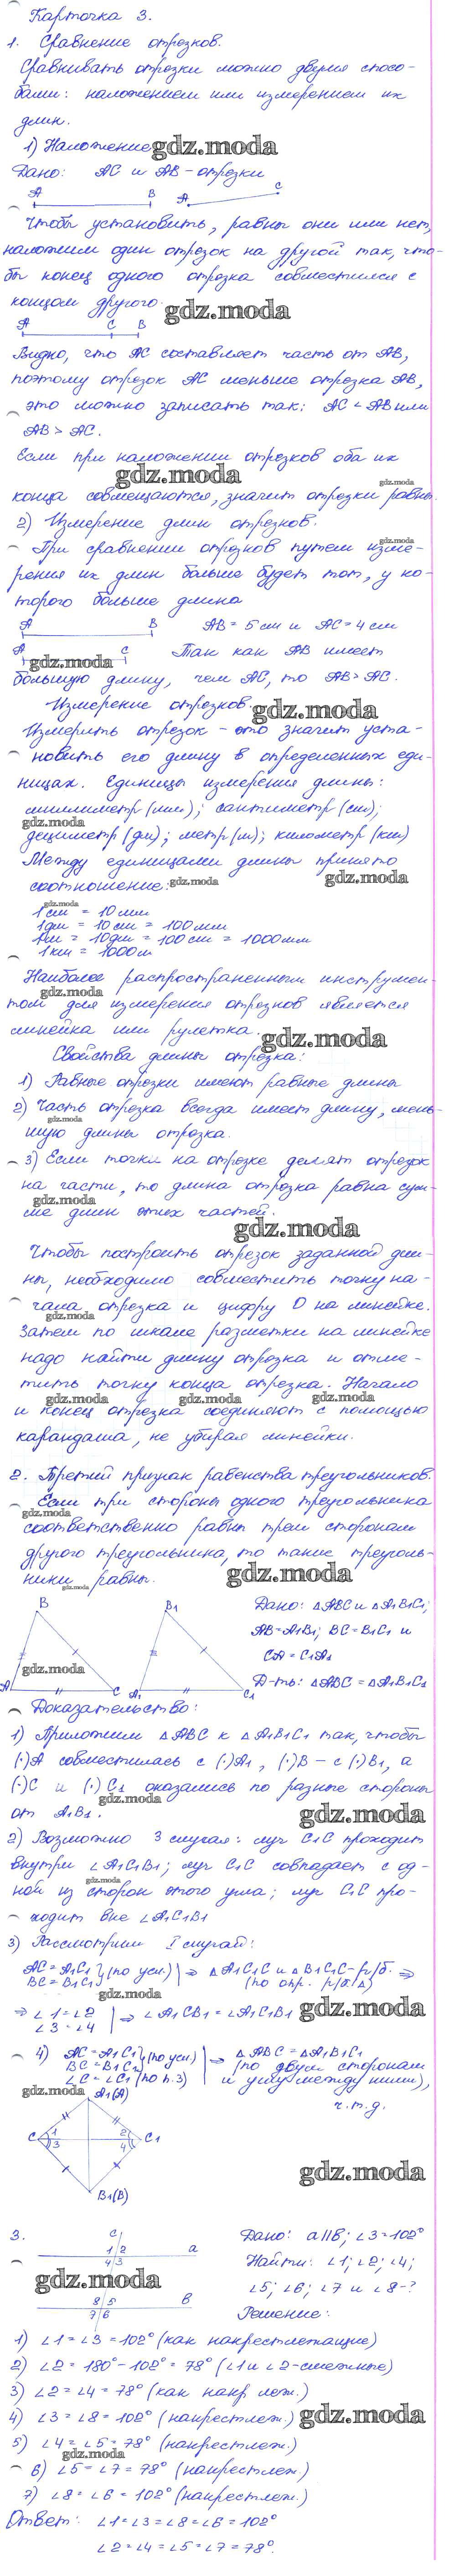 Карточка 3.
1. Сравнение отрезков.
Сравнивать отрезки можно двумя спосо-
бами: наложением или измерением их
длин.
1) Наложение gdz.moda
Дано: AC и AB - отрезки
A B A C
Чтобы установить, равны они или нет,
наложим один отрезок на другой так, что-
бы конец одного отрезка совместился с
концом другого. gdz.moda
A C B
Видно, что AC составляет часть от AB,
поэтому отрезок AC меньше отрезка AB,
это можно записать так: AC < AB или
AB > AC.
Если при наложении отрезков оба их
gdz.moda gdz.moda
конца совмещаются, значит отрезки равны.
2) Измерение длин отрезков.
gdz.moda
При сравнении отрезков путем изме-
рения их длин больше будет тот, у ко-
торого больше длина
A B AB = 5 см и AC = 4 см
A C Так как AB имеет
gdz.moda
большую длину, чем AC, то AB > AC.
Измерение отрезков. gdz.moda
Измерить отрезок - это значит уста-
новить его длину в определенных еди-
ницах. Единицы измерения длины:
миллиметр (мм); сантиметр (см);
gdz.moda
дециметр (дм); метр (м); километр (км)
Между единицами длины принято
соотношение: gdz.moda gdz.moda
gdz.moda
1 см = 10 мм
1 дм = 10 см = 100 мм
1 м = 10 дм = 100 см = 1000 мм
1 км = 1000 м
Наиболее распространенным инструмен-
gdz.moda
том для измерения отрезков является
линейка или рулетка. gdz.moda
Свойства длины отрезка:
1) Равные отрезки имеют равные длины
2) Часть отрезка всегда имеет длину, мень-
gdz.moda
шую длины отрезка.
3) Если точки на отрезке делят отрезок
на части, то длина отрезка равна сум-
gdz.moda
ме длин этих частей.
gdz.moda
Чтобы построить отрезок заданной дли-
ны, необходимо совместить точку на-
чала отрезка и цифру 0 на линейке.
gdz.moda
Затем по шкале разметки на линейке
надо найти длину отрезка и отме-
тить точку конца отрезка. Начало
gdz.moda gdz.moda gdz.moda
и конец отрезка соединяют с помощью
карандаша, не убирая линейки.
2. Третий признак равенства треугольников.
Если три стороны одного треугольника
gdz.moda
соответственно равны трем сторонам
другого треугольника, то такие треуголь-
ники равны. gdz.moda gdz.moda
B B1 Дано: △ABC и △A1B1C1;
AB=A1B1; BC=B1C1 и
CA = C1A1
gdz.moda
A C A1 C1 Д-ть: △ABC = △A1B1C1
Доказательство:
1) Приложим △ABC к △A1B1C1 так, чтобы
(·)A совместилась с (·)A1, (·)B - с (·)B1, а
(·)C и (·)C1 оказались по разные стороны
gdz.moda
от A1B1. gdz.moda
2) Возможно 3 случая: луч C1C проходит
внутри ∠A1C1B1; луч C1C совпадает с од-
gdz.moda
ной из сторон этого угла; луч C1C про-
ходит вне ∠A1C1B1
3) Рассмотрим I случай:
AC = A1C1 } (по усл.) | ⇒ △A1C1C и △B1C1C - р/б. ⇒
BC = B1C1 (по опр. р/б △)
gdz.moda
⇒ ∠1=∠2 | ⇒ ∠A1CB1 = ∠A1C1B1 gdz.moda
∠3=∠4
4) AC = A1C1 } (по усл) | ⇒ △ABC = △A1B1C1
BC = B1C1 (по двум сторонам
∠C = ∠C1 (по п.3) и углу между ними),
gdz.moda
A1(A) ч.т.д.
C 1 3 2 4 C1
gdz.moda
B1(B)
3. c Дано: a∥b; ∠3=102°
1 2 a Найти: ∠1; ∠2; ∠4;
4 3
gdz.moda ∠5; ∠6; ∠7 и ∠8-?
8 5 b Решение:
7 6
1) ∠1=∠3=102° (как накрестлежащие)
2) ∠2= 180°-102°= 78° (∠1 и ∠2-смежные)
3) ∠2=∠4=78° (как накр. леж.)
4) ∠3=∠8=102° (накрестлеж.) gdz.moda
5) ∠4=∠5=78° (накрестлеж.)
gdz.moda
6) ∠5=∠7=78° (накрестлеж.)
7) ∠8=∠6=102° (накрестлеж.)
Ответ: ∠1=∠3=∠8=∠6=102°
∠2=∠4=∠5=∠7=78°.